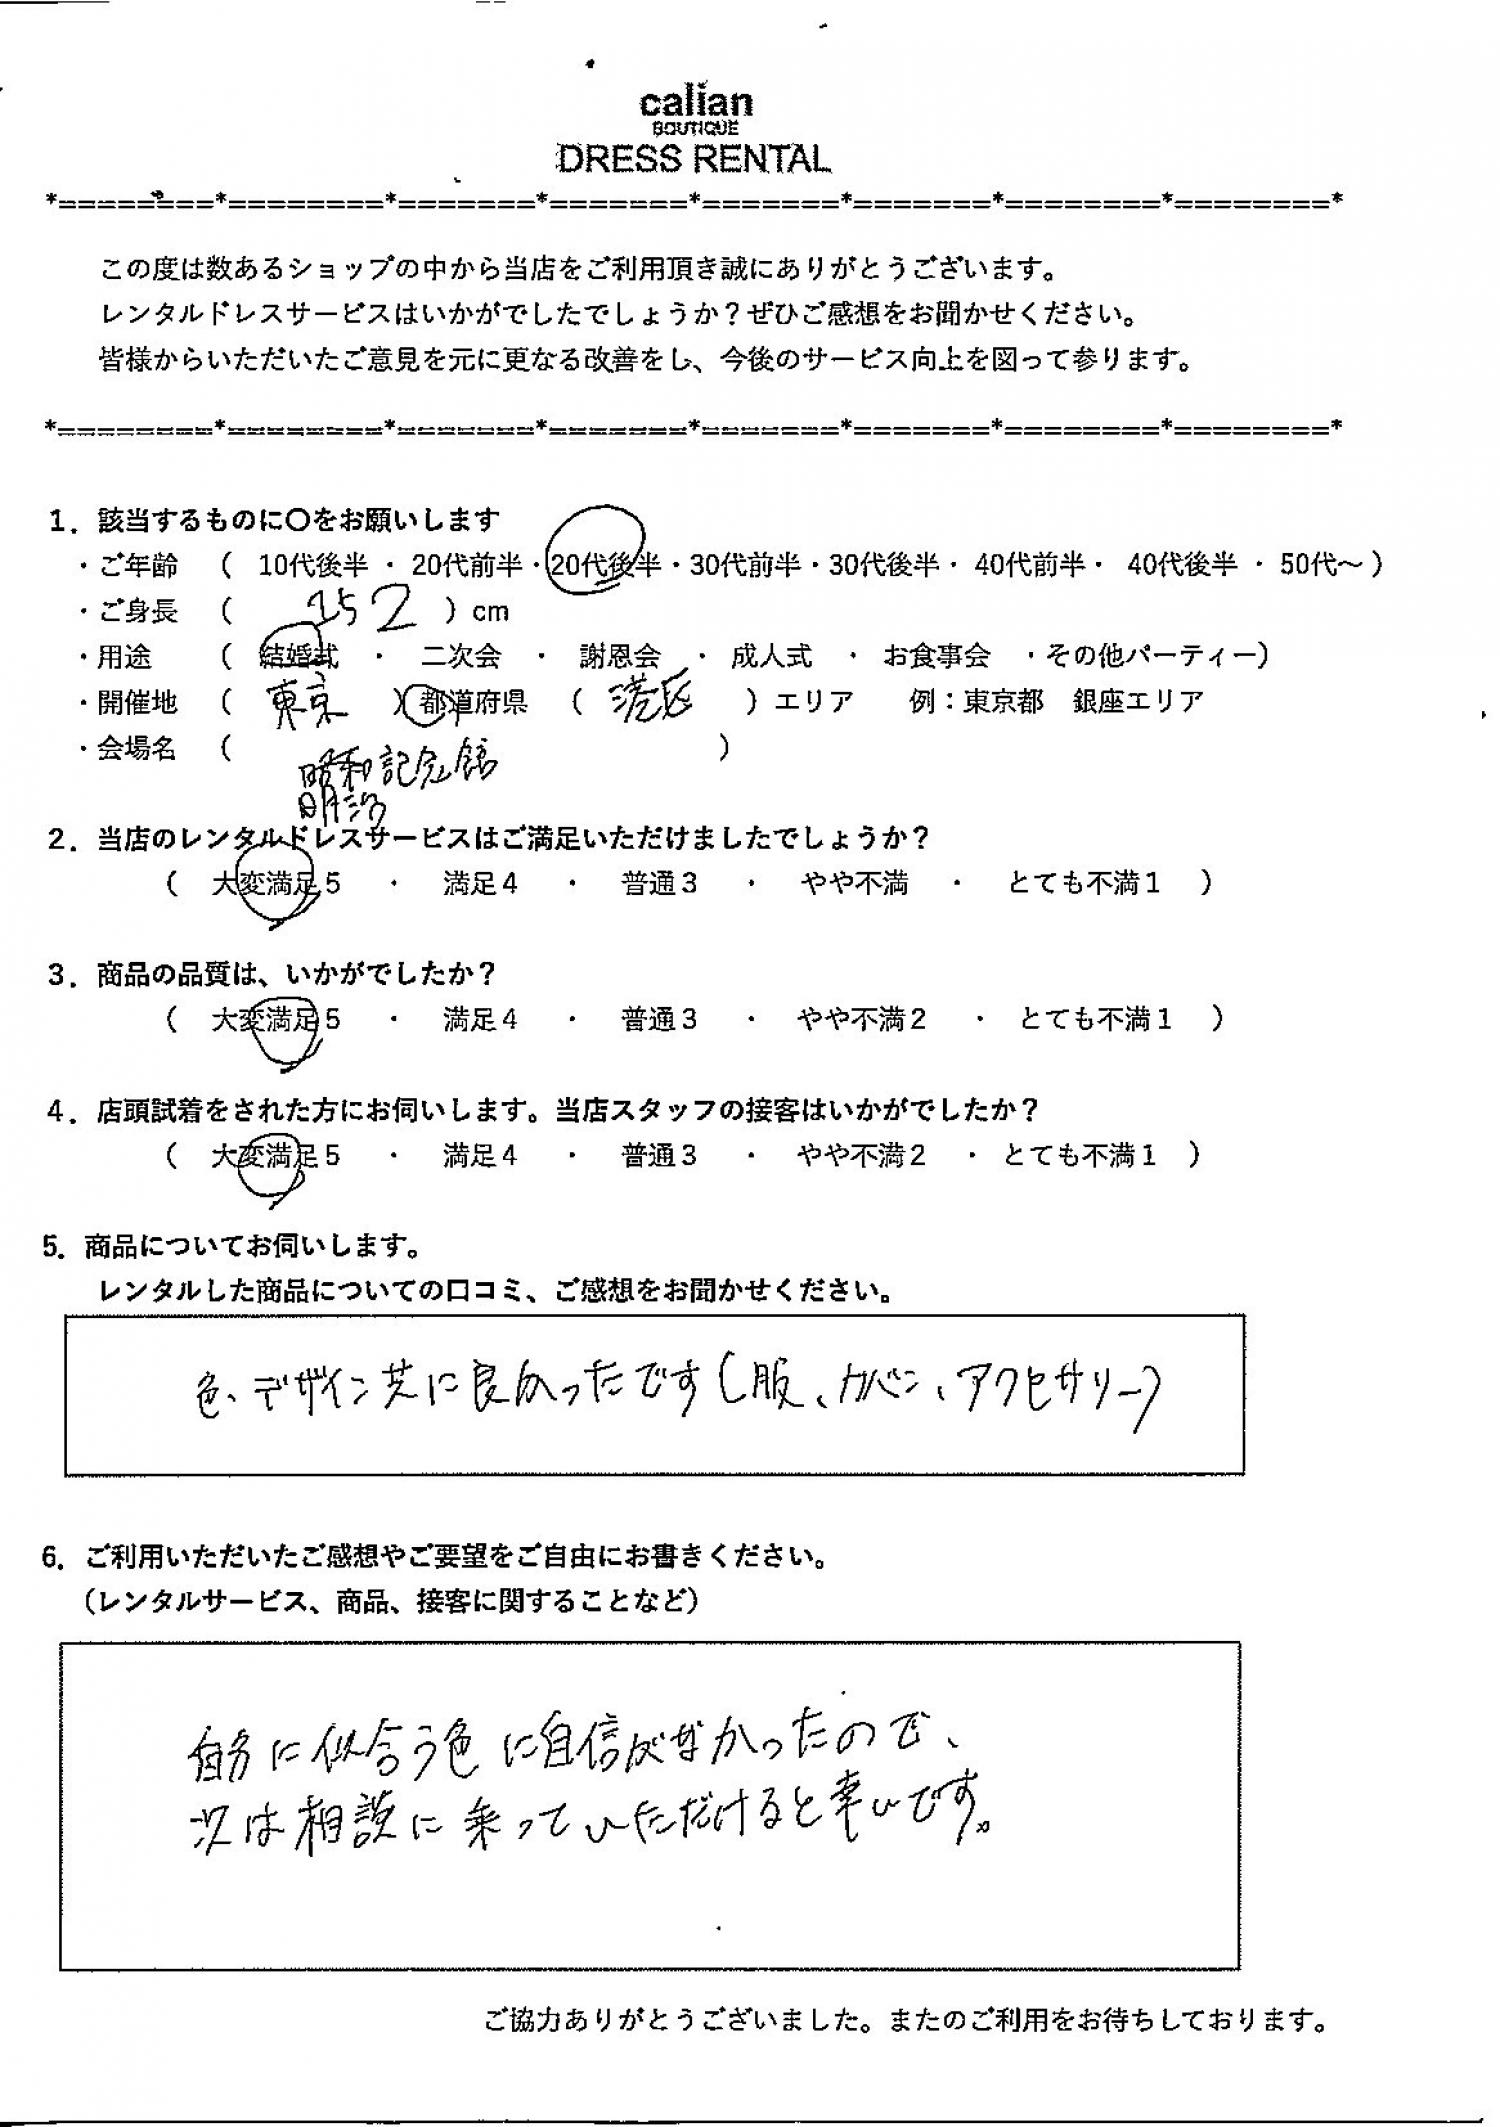 calian
BOUTIQUE
DRESS RENTAL
*========*========*=======*=======*=======*=======*========*========*
この度は数あるショップの中から当店をご利用頂き誠にありがとうございます。
レンタルドレスサービスはいかがでしたでしょうか？ぜひご感想をお聞かせください。
皆様からいただいたご意見を元に更なる改善をし、今後のサービス向上を図って参ります。
*========*========*=======*=======*=======*=======*========*========*
1．該当するものに〇をお願いします
・ご年齢 （ 10代後半 ・ 20代前半・20代後半・30代前半・30代後半・ 40代前半・ 40代後半 ・ 50代～）
・ご身長 （ 152 ）cm
・用途 （ 結婚式 ・ 二次会 ・ 謝恩会 ・ 成人式 ・ お食事会 ・その他パーティー）
・開催地 （ 東京 ）都道府県 （ 港区 ）エリア 例：東京都 銀座エリア
・会場名 （ 昭和記念館 ）
明治
2．当店のレンタルドレスサービスはご満足いただけましたでしょうか？
（ 大変満足5 ・ 満足4 ・ 普通3 ・ やや不満 ・ とても不満1 ）
3．商品の品質は、いかがでしたか？
（ 大変満足5 ・ 満足4 ・ 普通3 ・ やや不満2 ・ とても不満1 ）
4．店頭試着をされた方にお伺いします。当店スタッフの接客はいかがでしたか？
（ 大変満足5 ・ 満足4 ・ 普通3 ・ やや不満2 ・ とても不満1 ）
5．商品についてお伺いします。
レンタルした商品についての口コミ、ご感想をお聞かせください。
色、デザイン共に良かったです（服、カバン、アクセサリー）
6．ご利用いただいたご感想やご要望をご自由にお書きください。
（レンタルサービス、商品、接客に関することなど）
自分に似合う色に自信がなかったので、
次は相談に乗っていただけると幸いです。
ご協力ありがとうございました。またのご利用をお待ちしております。